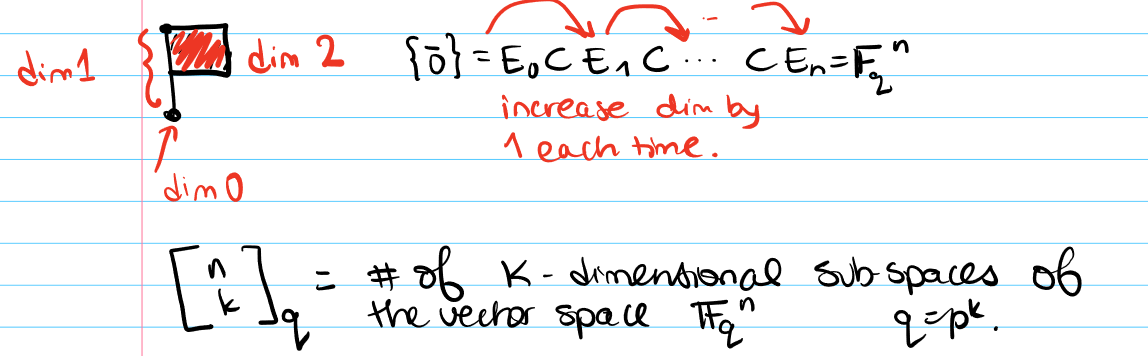 dim 1
dim 2
dim 0
{0̄} = E₀ ⊂ E₁ ⊂ ··· ⊂ Eₙ = 𝔽_q^n
increase dim by
1 each time.
[n k]_q = # of k-dimensional sub-spaces of
the vector space 𝔽_q^n q=p^k.